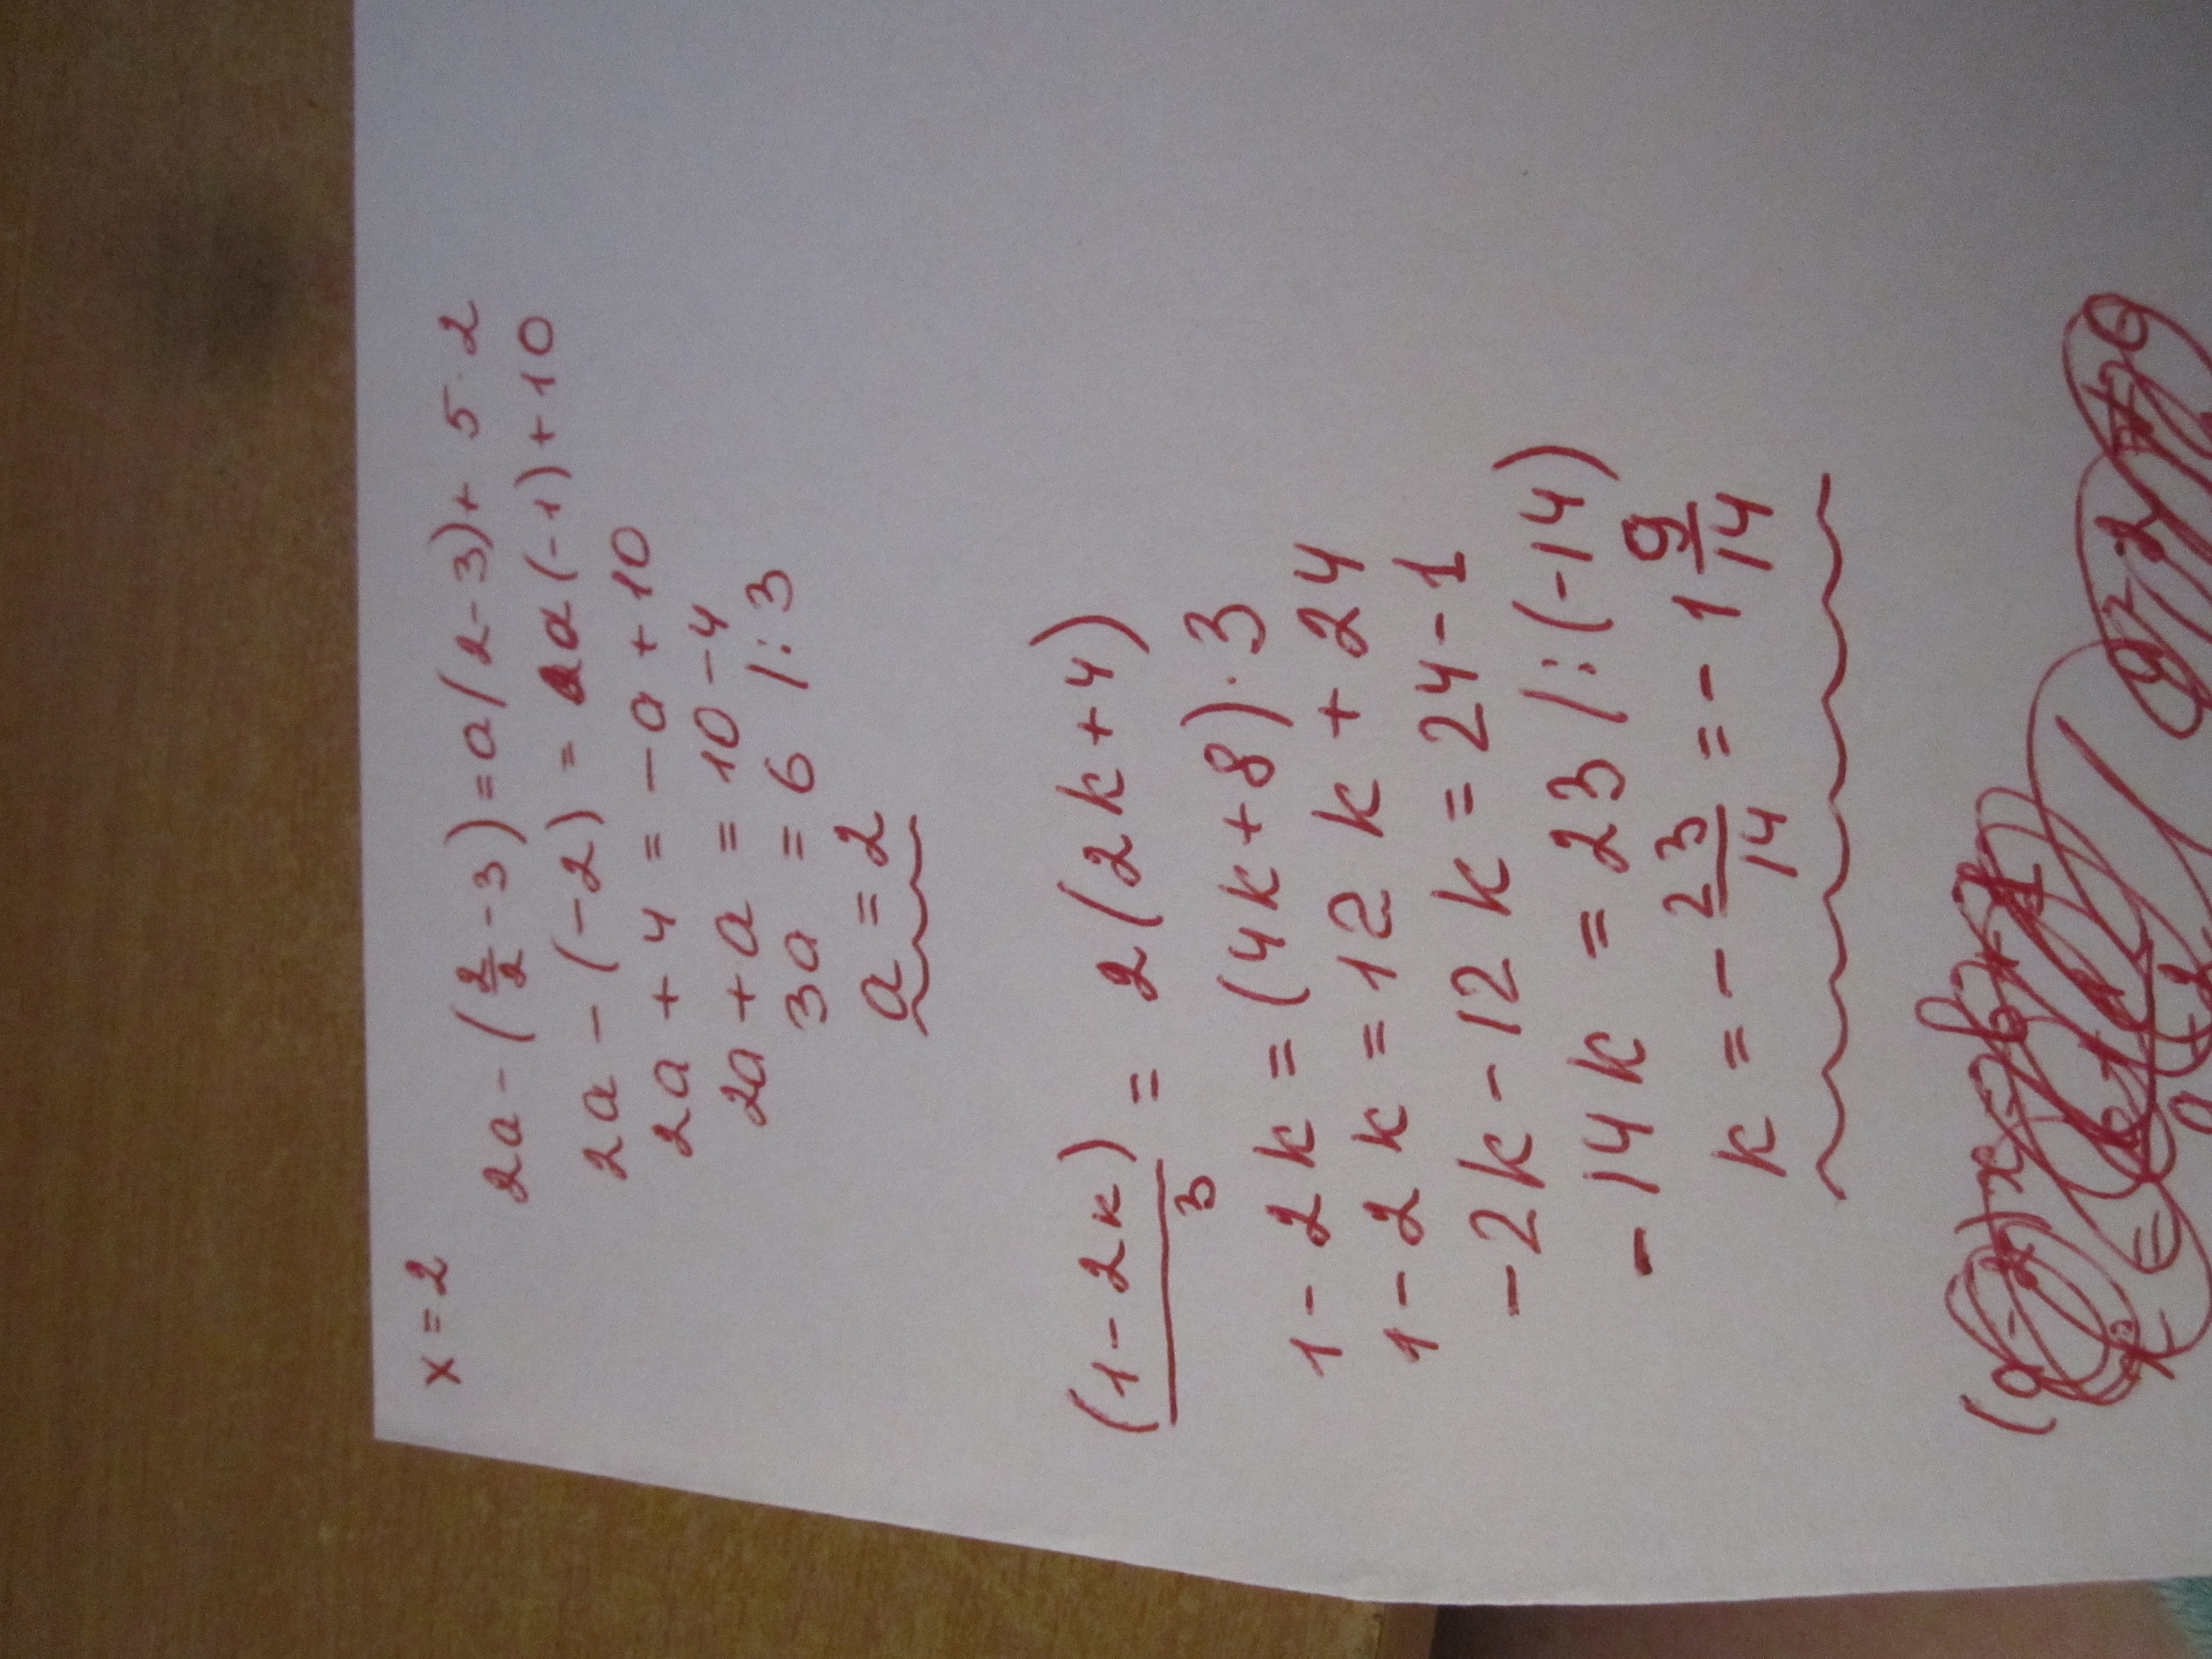 x = 2
2a - (2/2 - 3) = a(2-3) + 5·2
2a - (-2) = a(-1) + 10
2a + 4 = -a + 10
2a + a = 10 - 4
3a = 6 /:3
a = 2
(1-2k)/3 = 2(2k+4)
1 - 2k = (4k+8)·3
1 - 2k = 12k + 24
-2k - 12k = 24 - 1
-14k = 23 /:(-14)
k = - 23/14 = - 1 9/14